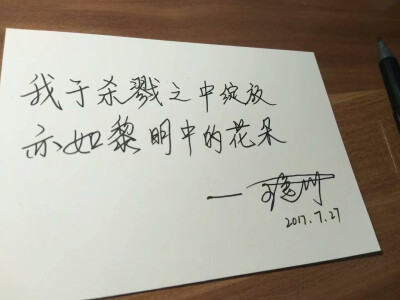 我于杀戮之中绽放
亦如黎明中的花朵
2017.7.27